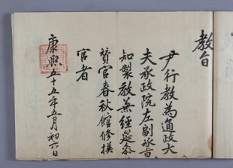 教旨
尹行教為通政大
夫承政院左副承旨
知製教兼經筵參
賛官春秋館修撰
官者
康熙五十五年五月初六日